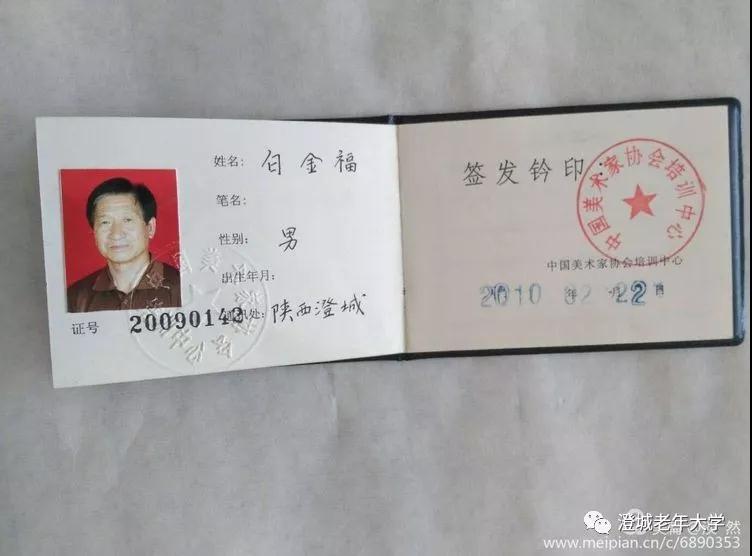 姓名：白金福
笔名：
性别：男
出生年月：
通讯处：陕西澄城
证号 20090142
签发钤印：
中国美术家协会培训中心
中国美术家协会培训中心
2010年02月22日
澄城老年大学
www.meipian.cn/c/6890353